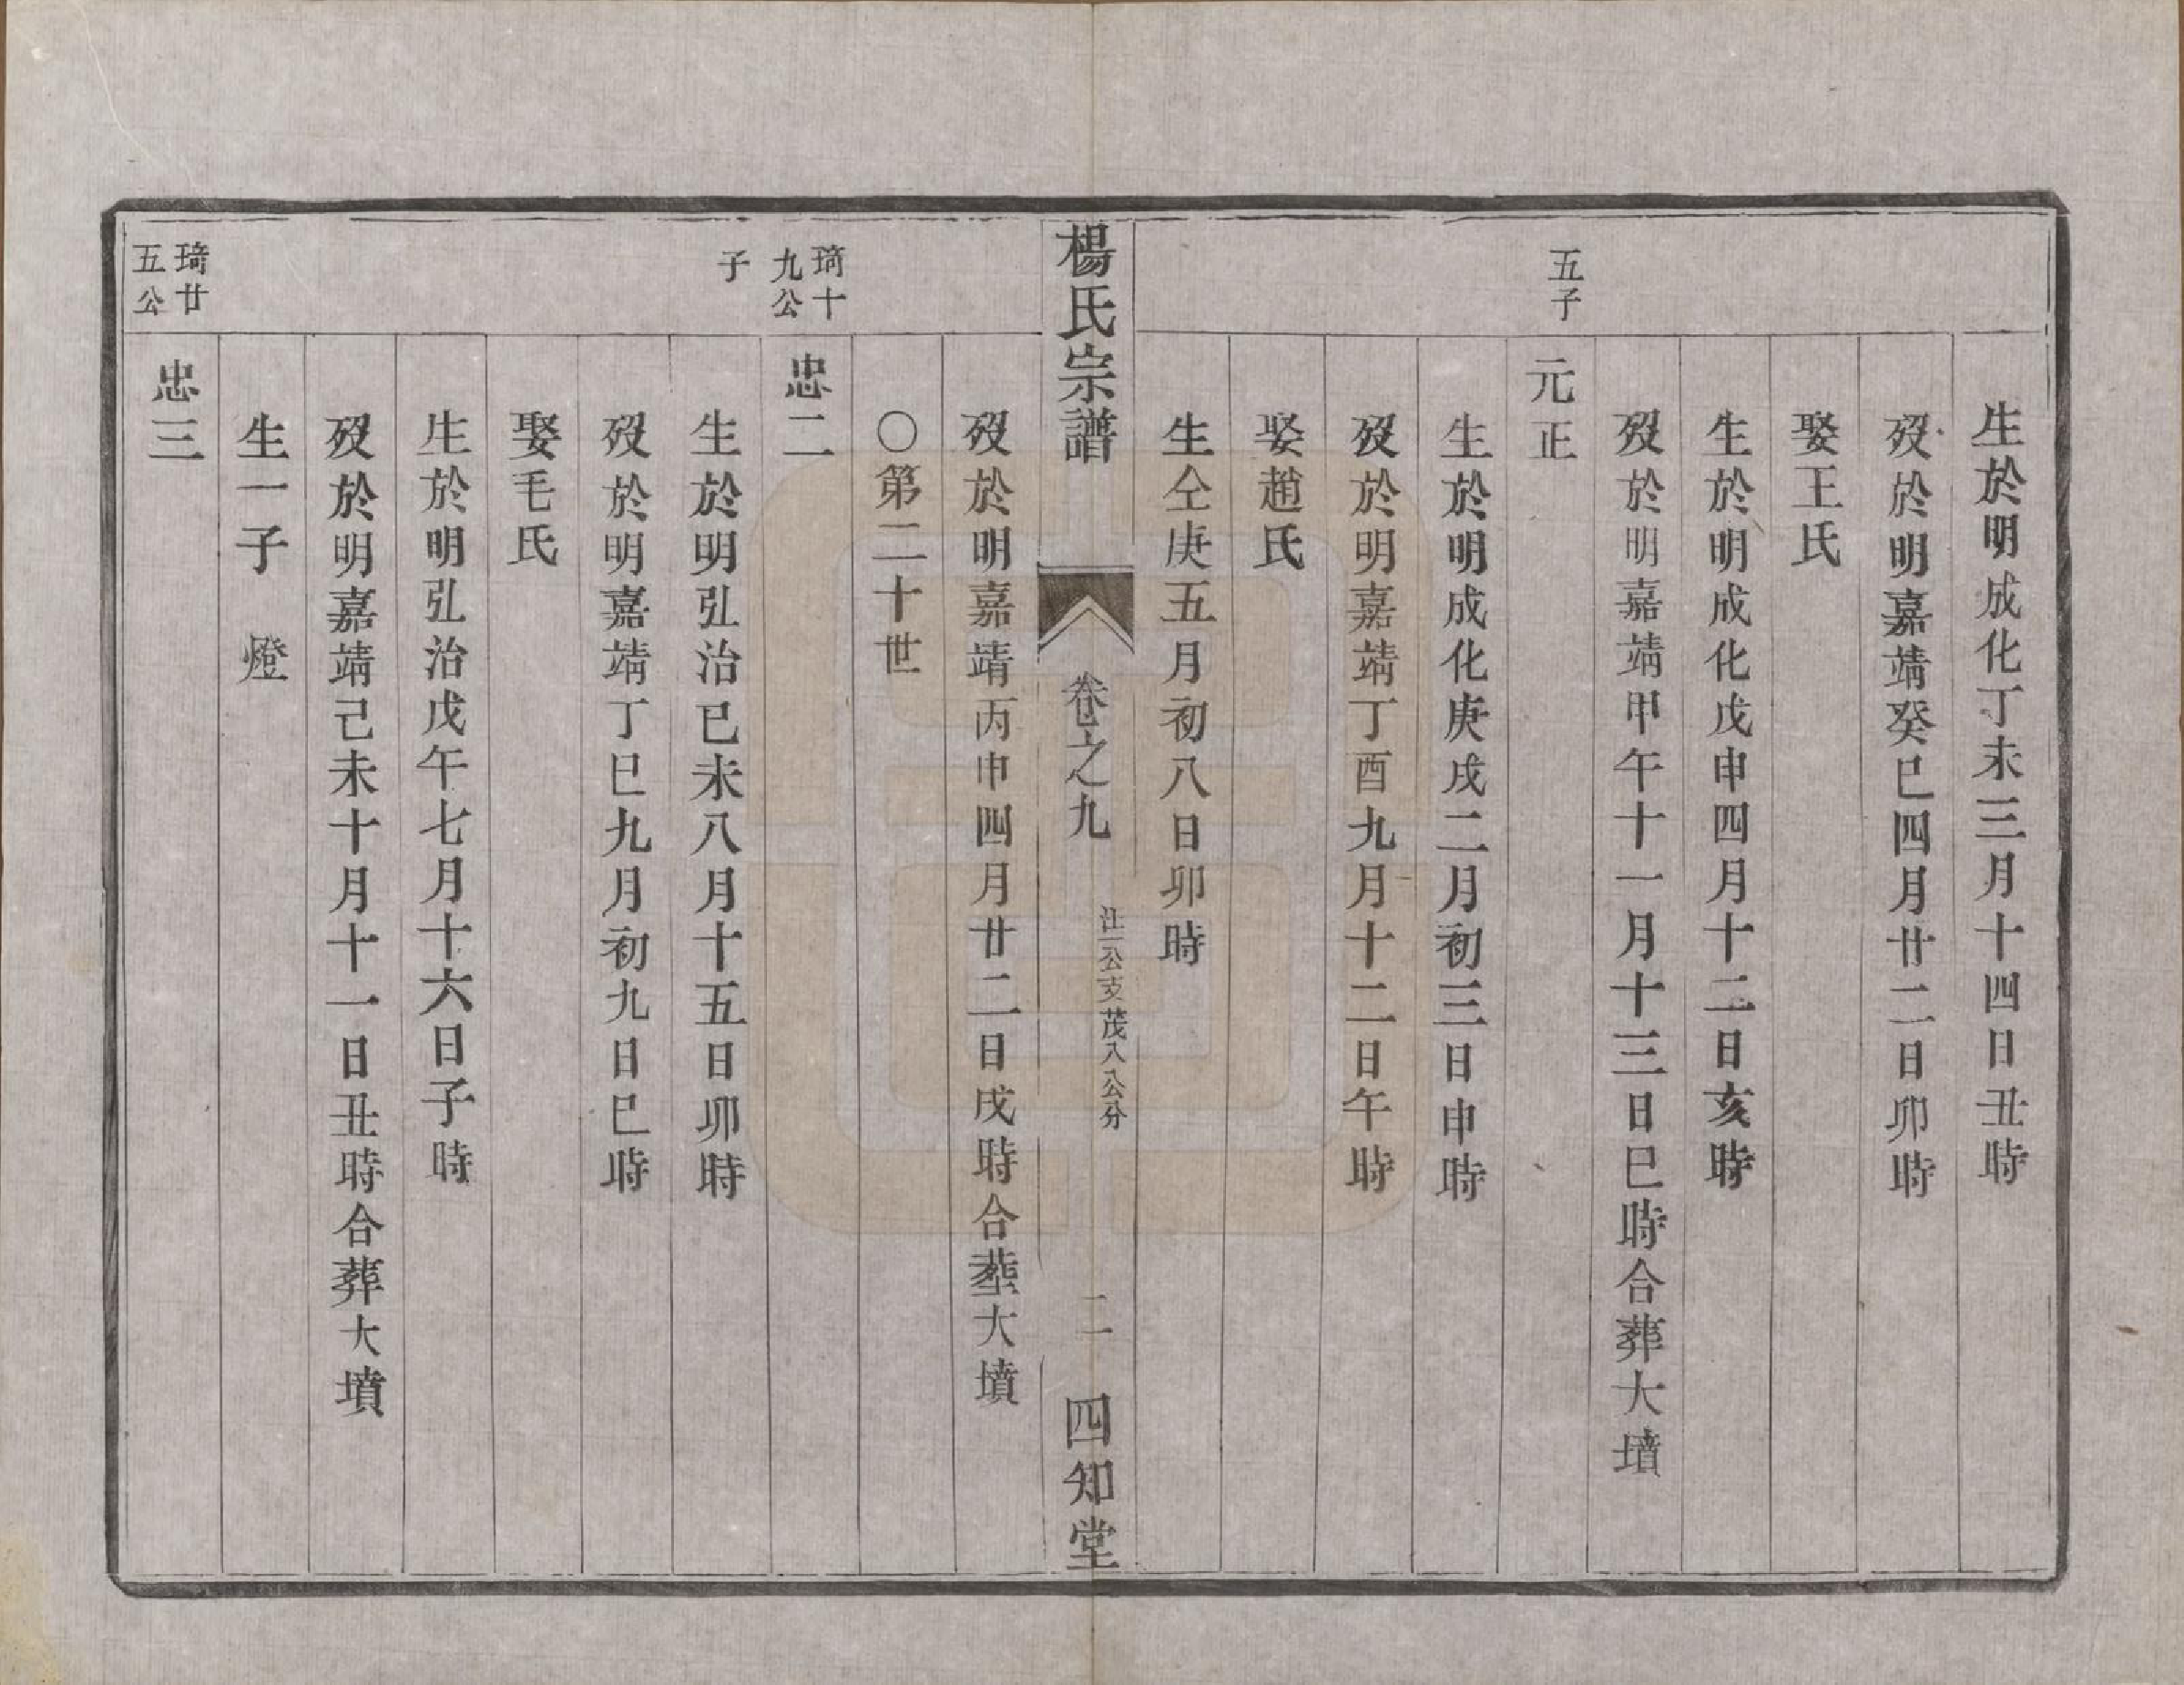 生於明成化丁未三月十四日丑時
歿於明嘉靖癸巳四月廿二日卯時
娶王氏
生於明成化戊申四月十二日亥時
歿於明嘉靖甲午十一月十三日巳時合葬大墳
五子
元正
生於明成化庚戌二月初三日申時
歿於明嘉靖丁酉九月十二日午時
娶趙氏
生仝庚五月初八日卯時
楊氏宗譜
卷之九
注一公支茂八公分
二
四知堂
歿於明嘉靖丙申四月廿二日戌時合塟大墳
〇第二十世
琦十
九公
子
忠二
生於明弘治己未八月十五日卯時
歿於明嘉靖丁巳九月初九日巳時
娶毛氏
生於明弘治戊午七月十六日子時
歿於明嘉靖己未十月十一日丑時合葬大墳
生一子 燈
琦廿
五公
忠三